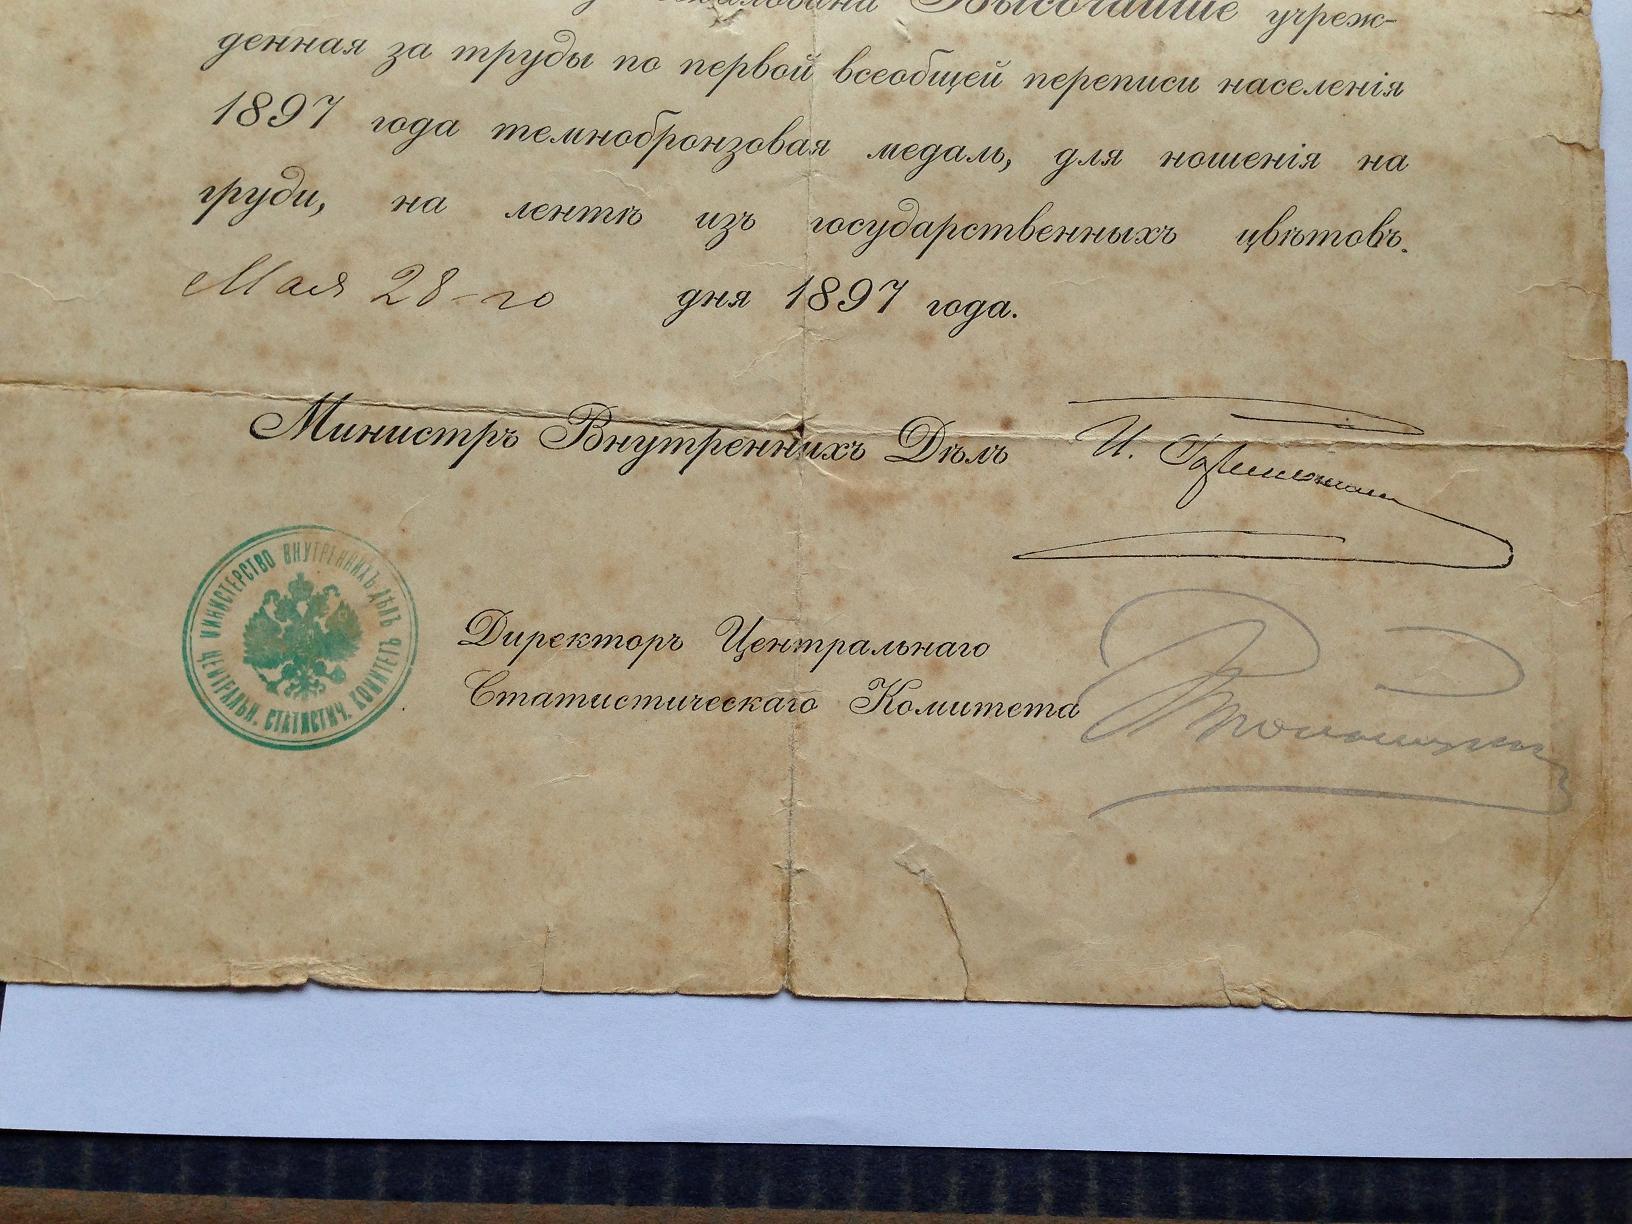 Высочайше учреж-
денная за труды по первой всеобщей переписи населенія
1897 года темнобронзовая медаль, для ношенія на
груди, на лентѣ изъ государственныхъ цвѣтовъ.
Мая 28-го дня 1897 года.
Министръ Внутреннихъ Дѣлъ И. Горемыкин
МИНИСТЕРСТВО ВНУТРЕННИХЪ ДѢЛЪ
ЦЕНТРАЛЬН. СТАТИСТИЧ. КОМИТЕТЪ
Директоръ Центральнаго
Статистическаго Комитета